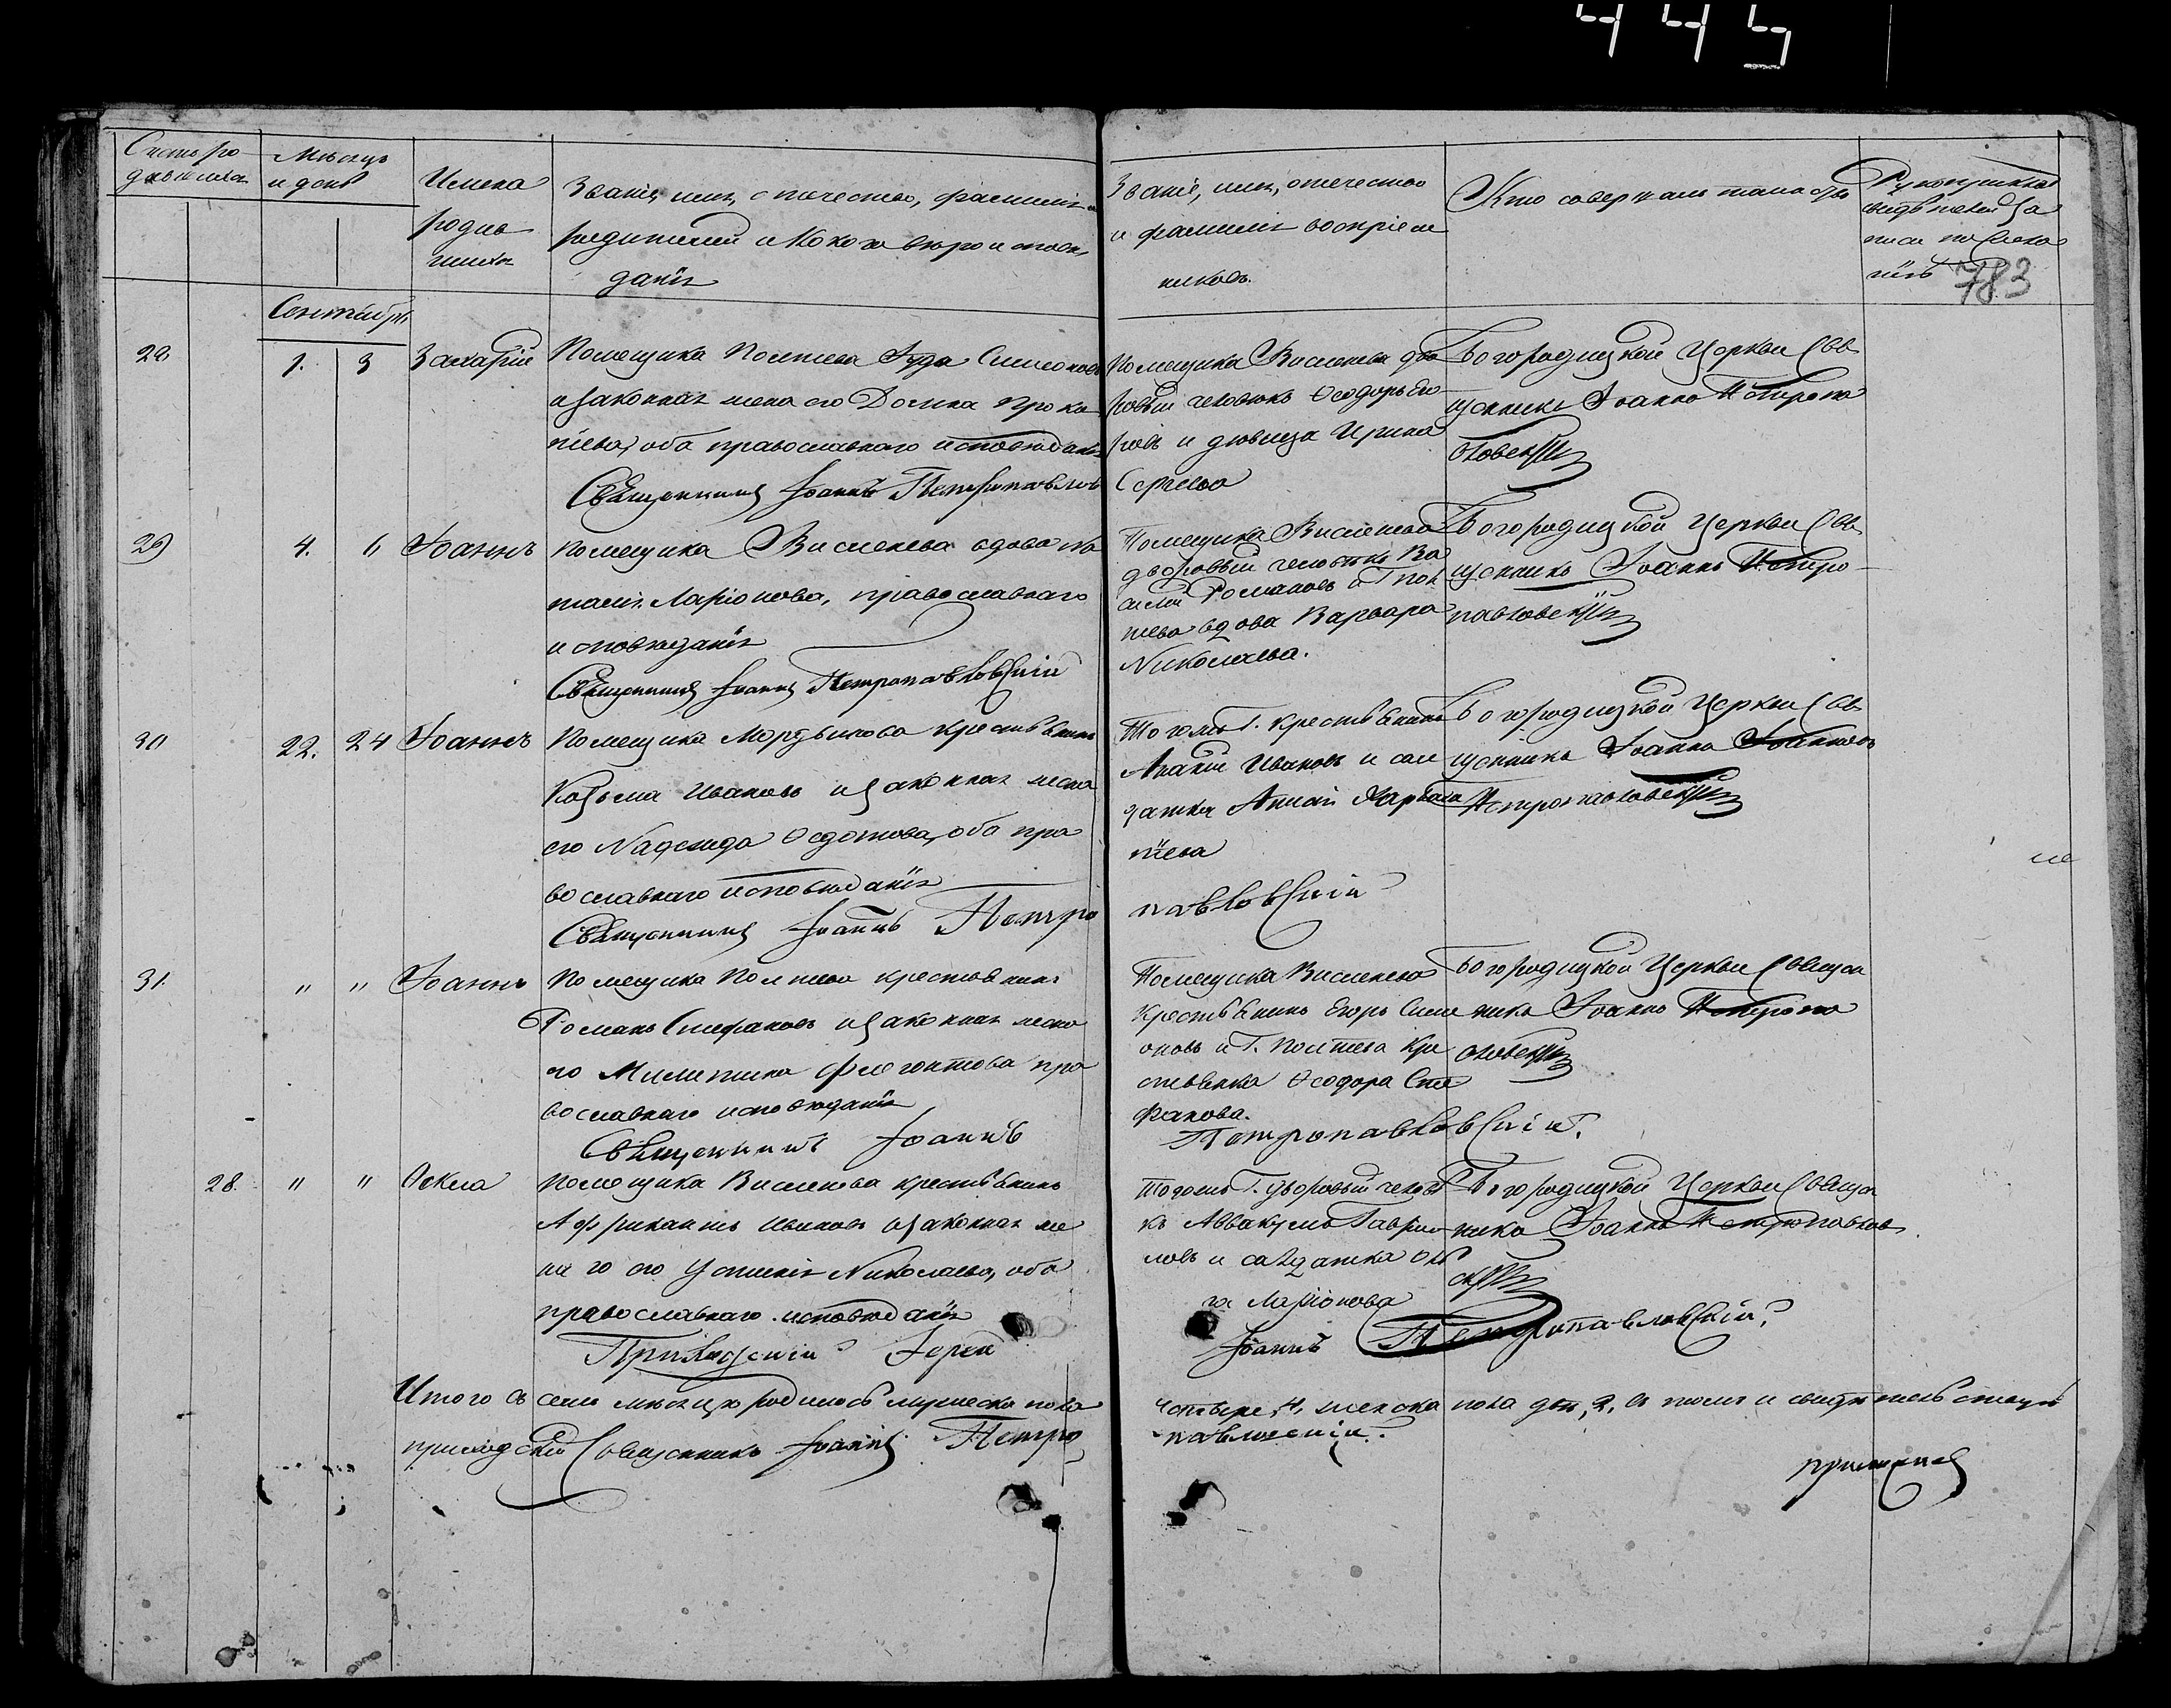 445
Счетъ ро
дившихся
Мѣсяцъ
и день
Имена
родив
шихся
Званіе, имя, отчество, фамилія
родителей и какого вѣроисповѣ
данія
Званіе, имя, отчество
и фамилія воспріем
никовъ.
Кто совершалъ таинство
Рукоприклад
свидѣтелей за
писи по жела
нію
783
Сентябрь
28
1. 3
Захарій
Помещика Полтева Симеоновъ
и законная жена его Домна Прока
піева, оба православнаго исповѣданія
Священникъ Іоаннъ Петропавлов
Помещика Вислянева дво
ровый человѣкъ Ѳеодоръ Его
ровъ и дѣвица Ирина
Сергеева
Богородицкой Церкви Свя
щенникъ Іоаннъ Петропа
вловскій
29
4. 6
Іоаннъ
Помещика Вислянева вдова На
талія Ларіонова, православнаго
исповѣданія
Священникъ Іоаннъ Петропавловскій
Помещика Вислянева
дворовый человѣкъ Ва
силій Романовъ и Г Пол
тева вдова Варвара
Николаева.
Богородицкой Церкви Свя
щенникъ Іоаннъ Петро
павловскій
30
22. 24
Іоаннъ
Помещика Мордвинова крестьянинъ
Козьма Ивановъ и законная жена
его Надежда Ѳедотова, оба пра
вославнаго исповѣданія
Священникъ Іоаннъ Петро
Тогожъ Г. крестьянинъ
Ананій Ивановъ и сол
датка
піева
павловскій
Богородицкой Церкви Свя
щенникъ Іоаннъ Іоанновъ
Петропавловскій
31.
" "
Іоаннъ
Помещика Полтева крестьянинъ
Романъ Стефановъ и законная жена
его Милитина Флегонтова пра
вославнаго исповѣданія
Священникъ Іоаннъ
Помещика Вислянева
крестьянинъ Егоръ Симе
оновъ и Г. Полтева кре
стьянка Ѳеодора Сте
фанова.
Петропавловскій.
Богородицкой Церкви Священ
никъ Іоаннъ Петропа
вловскій
28.
" "
Ѳекла
Помещика Вислянева крестьянинъ
Африканъ Ивановъ и законная же
на его Устинія Николаева, оба
православнаго исповѣданія
Приходскій Іерей
Тогожъ Г. дворовый человѣ
къ Аввакумъ Гаври
ловъ и салдатка Оль
га Ларіонова
Іоаннъ Петропавловскій.
Богородицкой Церкви Священ
никъ Іоаннъ Петропавлов
скій
Итого въ семъ мѣсяцѣ родилось мужеска пола
четыре, 4, женска пола двѣ, 2, въ томъ и свидѣтельствуетъ
приходскій Священникъ Іоаннъ Петро
павловскій.